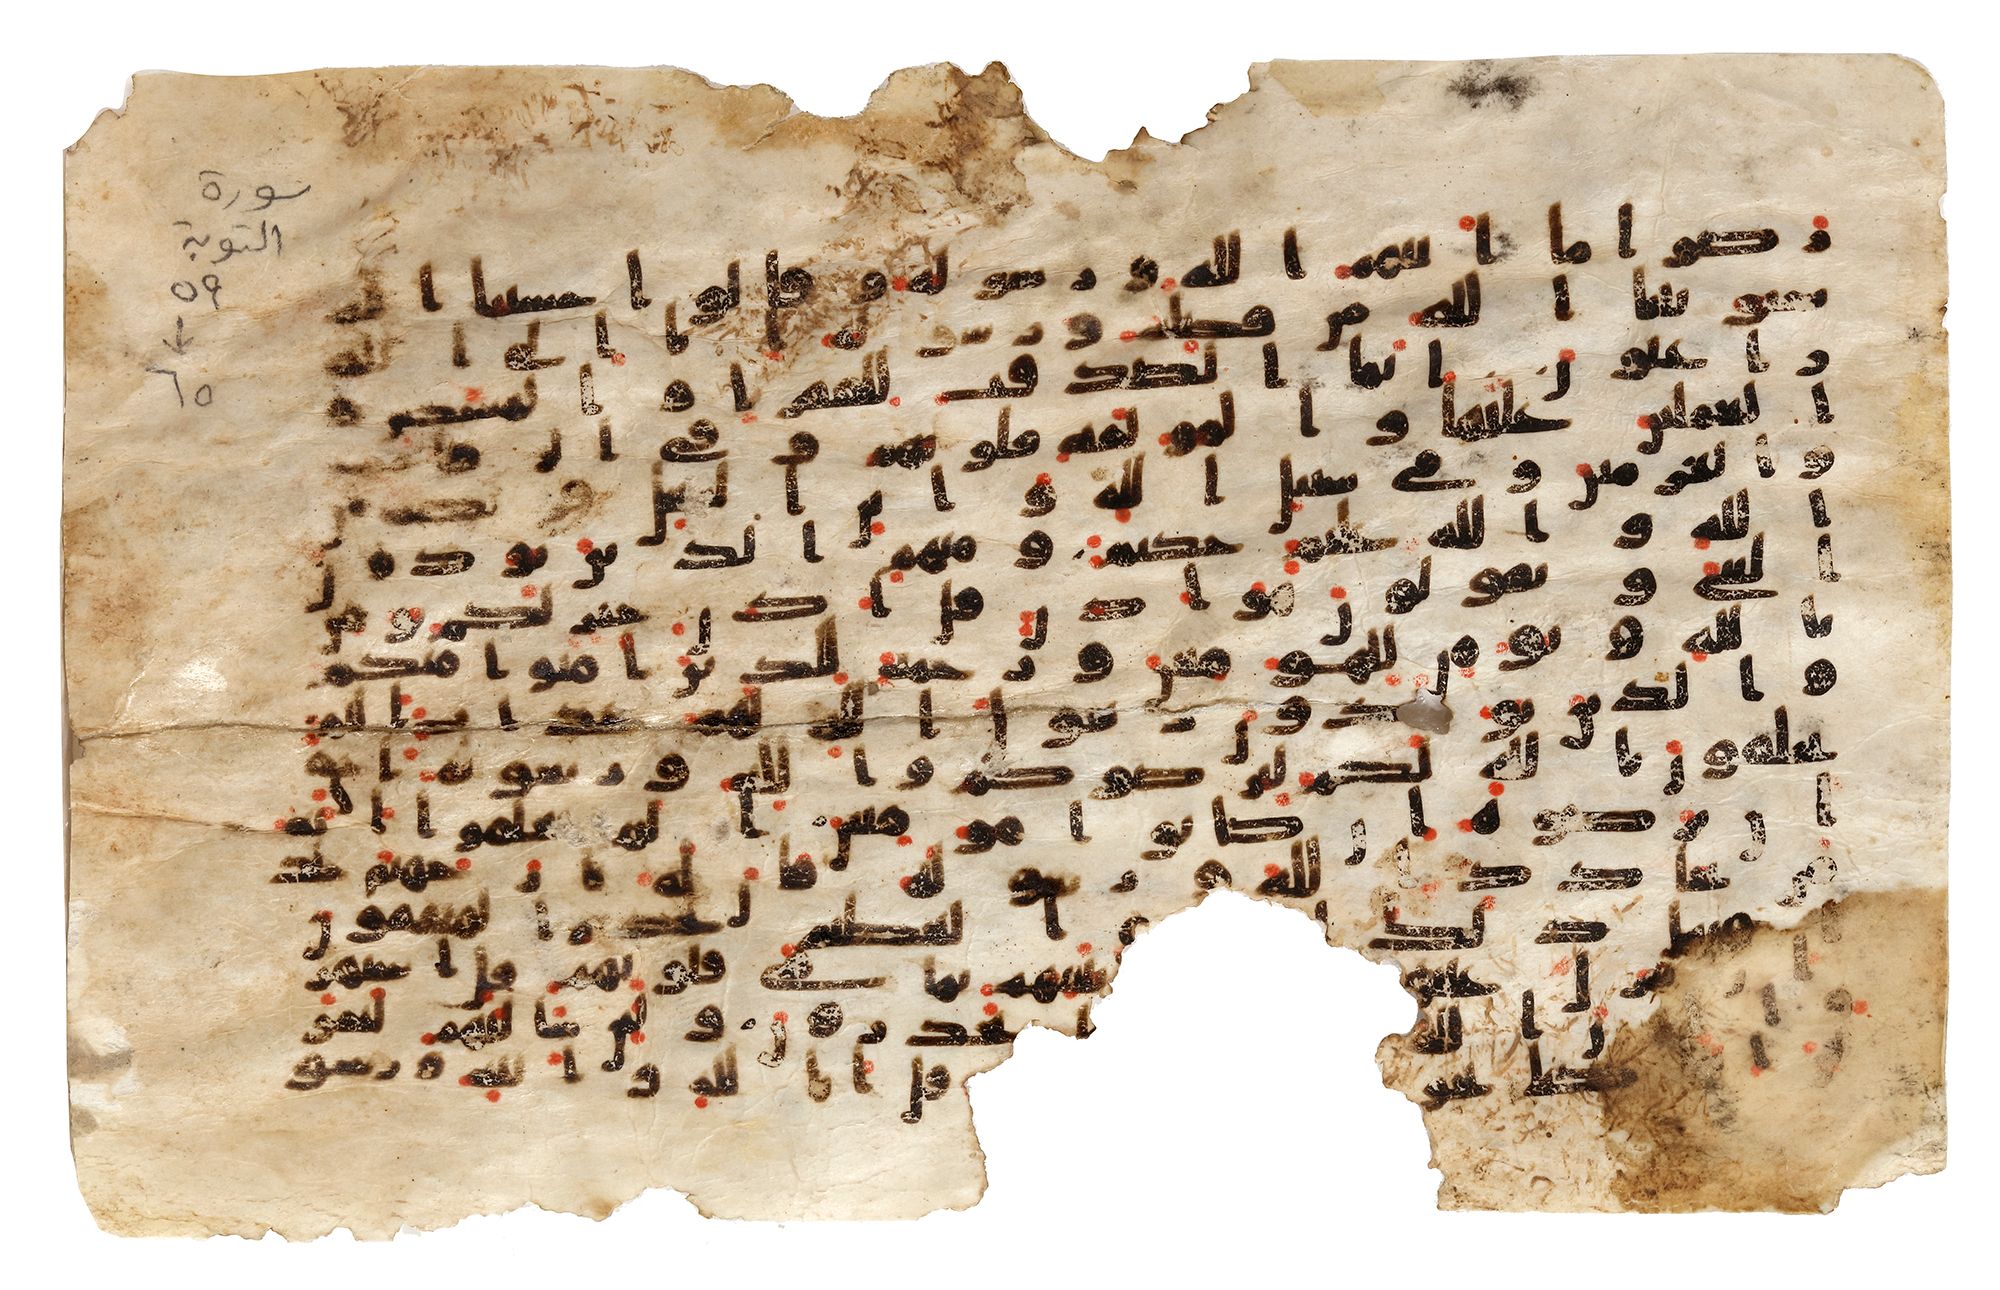 سورة
التوبة
٥٩
↓
٦٥
رضوا ما اتيهم الله ورسوله وقالوا حسبنا الله
سيوتينا الله من فضله ورسوله انا الى الله
راغبون انما الصدقت للفقرا والمسكين و
العملين عليها والمولفة قلوبهم وفي الرقاب
والغرمين وفي سبيل الله وابن السبيل فريضة من
الله والله عليم حكيم ومنهم الذين يوذون
النبي ويقولون هو اذن قل اذن خير لكم يومن
بالله ويومن للمومنين ورحمة للذين امنوا منكم
والذين يوذون رسول الله لهم عذاب اليم
يحلفون بالله لكم ليرضوكم والله ورسوله احق
ان يرضوه ان كانوا مومنين الم يعلموا انه
من يحادد الله ورسوله فان له نار جهنم خلد
فيها ذلك العظيم يحذر المنفقون
تنزل عليهم تنبيهم بما في قلوبهم قل استهز
ان الله ما تحذرون ولين سالتهم ليقو
كنا نخو قل ابالله وايته ورسو